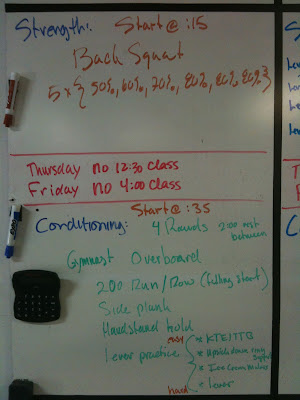 Strength: Start @ :15
Back Squat
5 x { 50%, 60%, 70%, 80%, 80%, 80% }
Thursday no 12:30 class
Friday no 4:00 class
Start @ :35
Conditioning: 4 Rounds 2:00 rest between
Gymnast Overboard
200 Run/Row (falling start)
Side plank
Handstand hold
Lever practice
easy * KTE/TTB
* Upside down ring
* Ice Cream Makers
hard * Lever